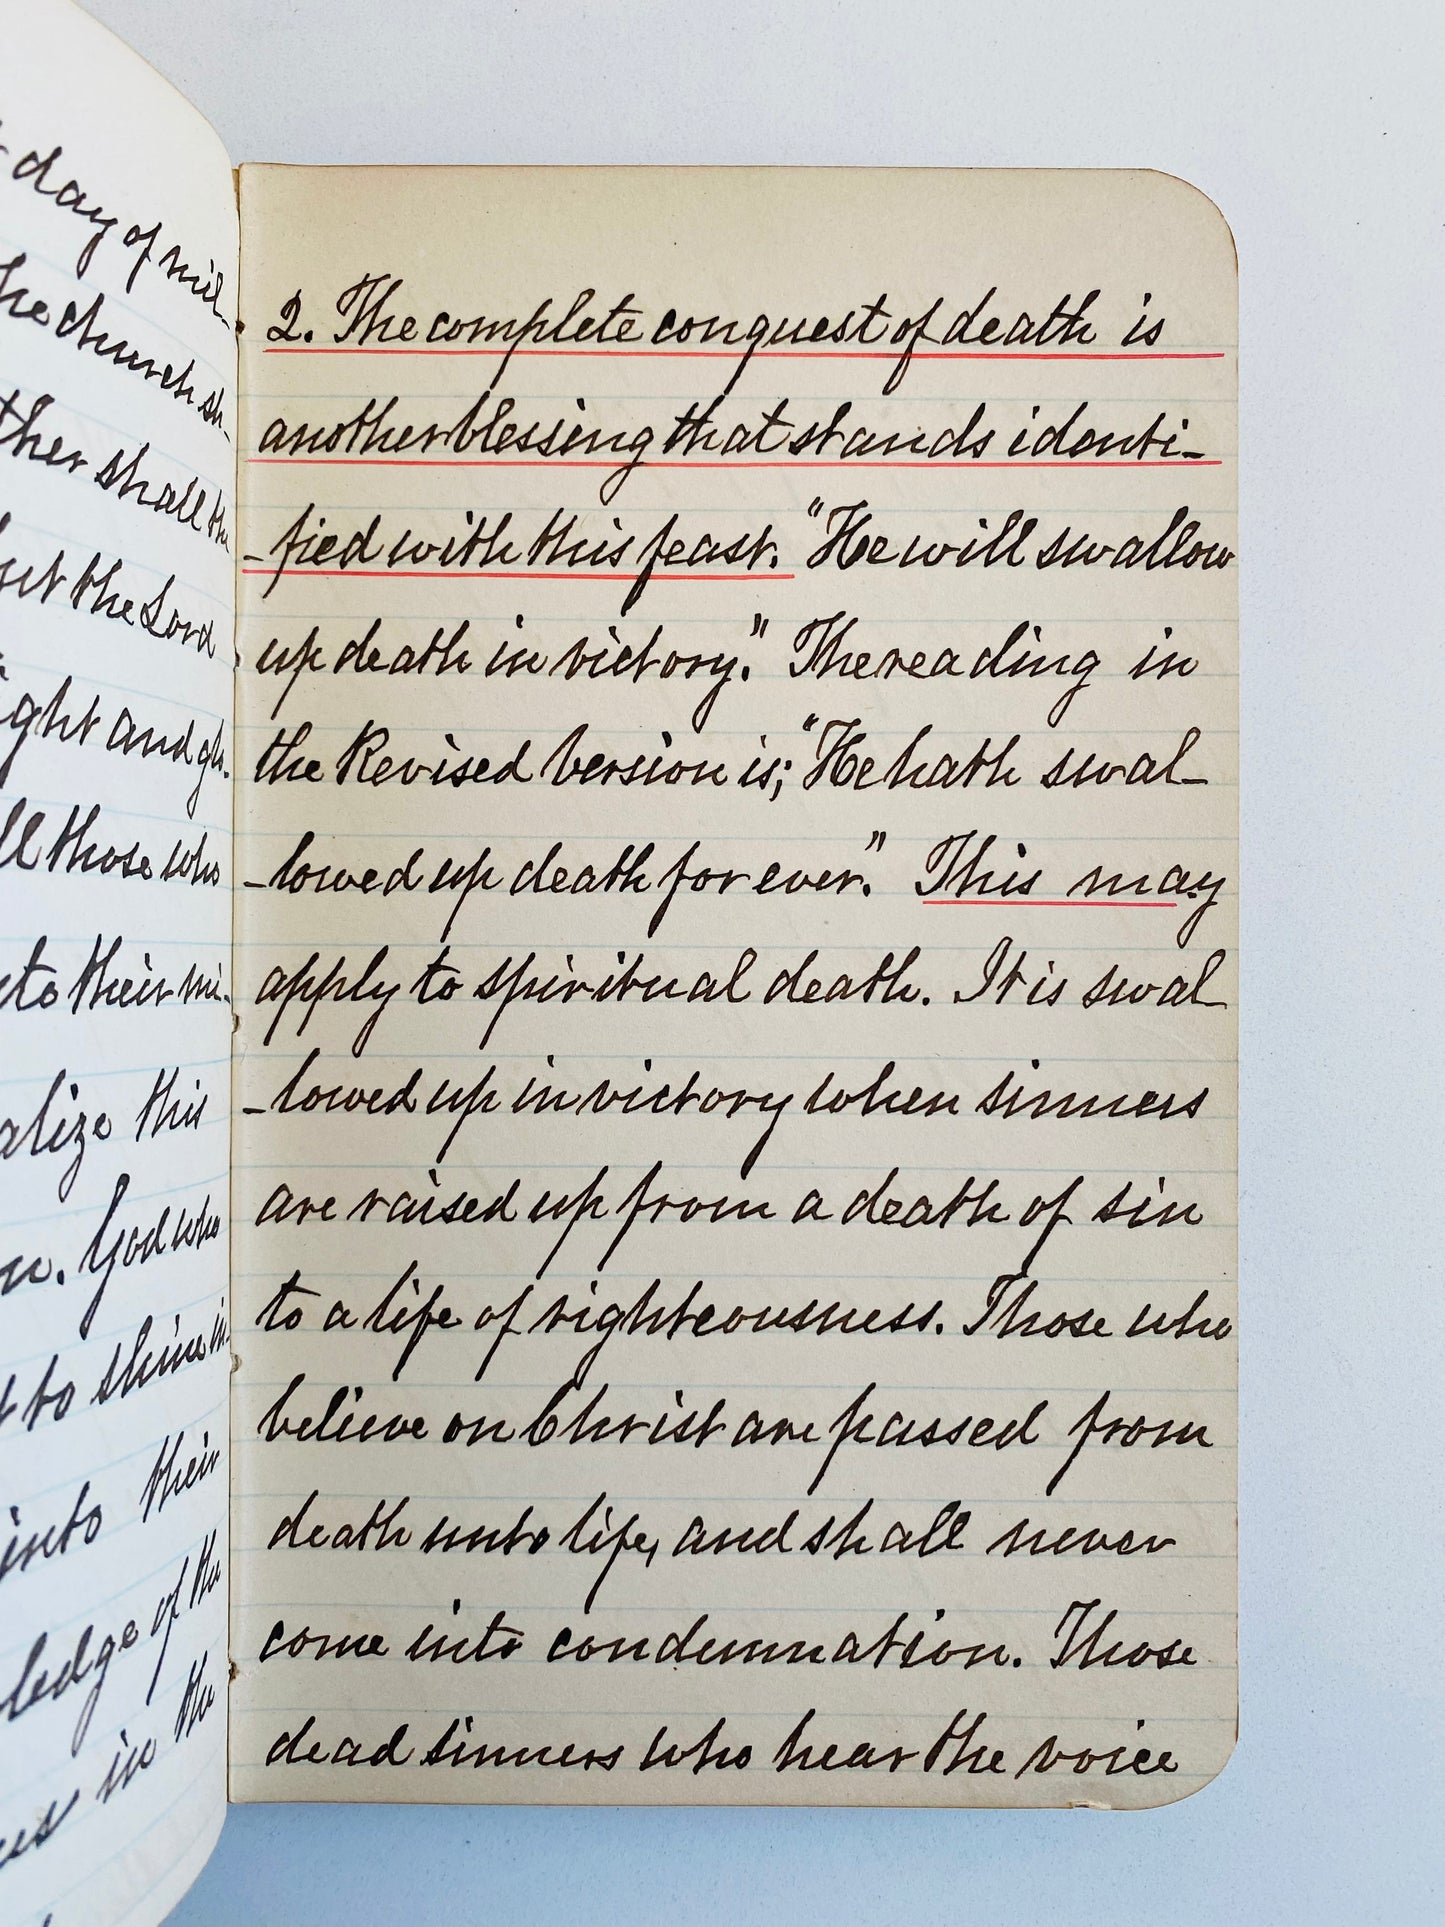 day of mil-
church sh-
shall the
the Lord
and glo-
those who
to their mi-
this
God who
to shine in-
into their
of the
in the
2. The complete conquest of death is
another blessing that stands identi-
-fied with this feast. "He will swallow
up death in victory." The reading in
the Revised Version is; "He hath swal-
-lowed up death for ever." This may
apply to spiritual death. It is swal-
-lowed up in victory when sinners
are raised up from a death of sin
to a life of righteousness. Those who
believe on Christ are passed from
death unto life, and shall never
come into condemnation. Those
dead sinners who hear the voice